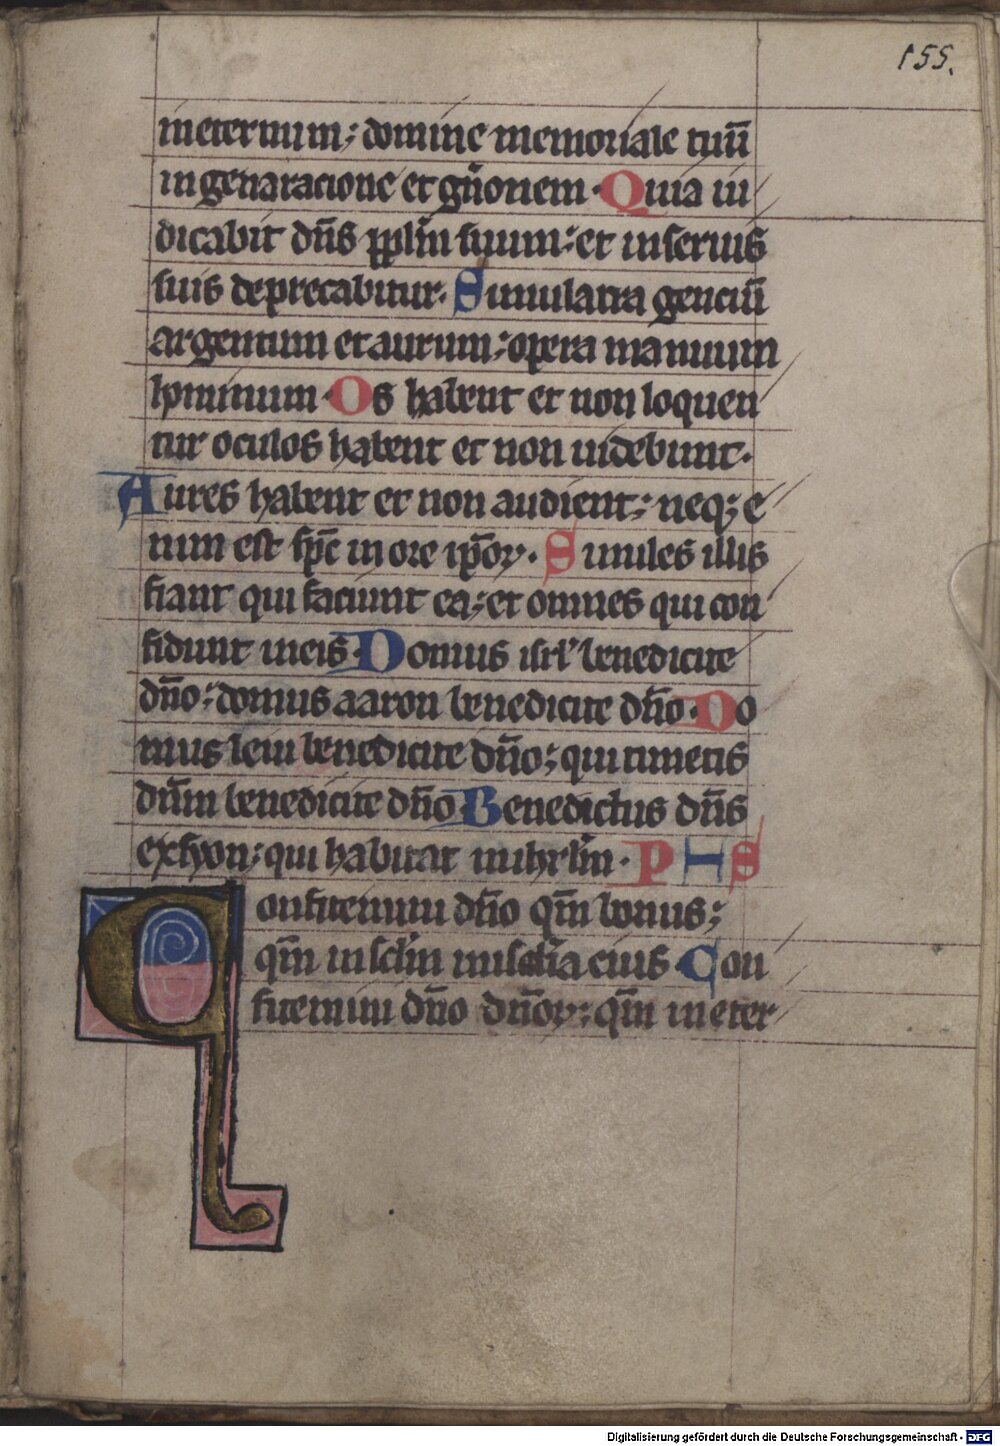 155.
ineternum; domine memoriale tuū
ingenaracione et gn̄onem. Quia iu
dicabit dn̄s pplm̄ suum; et inseruis
suis deprecabitur. Simulacra genciū
argentum et aurum; opera manuum
hominum. Os habent et non loquen
tur oculos habent et non uidebunt.
Aures habent et non audient; neq; e
nim est sp̄c in ore ip̄oꝝ. Similes illis
fiant qui faciunt ea; et omnes qui con
fidunt ineis. Domus isrl̄ benedicite
dn̄o; domus aaron benedicite dn̄o. Do
mus leui benedicite dn̄o; qui timetis
dn̄m benedicite dn̄o. Benedictus dn̄s
exsyon; qui habitat inihrlm̄. PHS
Confitemini dn̄o qm̄ bonus;
qm̄ insclm̄ mis̄dia eius. Con
fitemini dn̄o dn̄oꝝ; qm̄ ineter
Digitalisierung gefördert durch die Deutsche Forschungsgemeinschaft - DFG